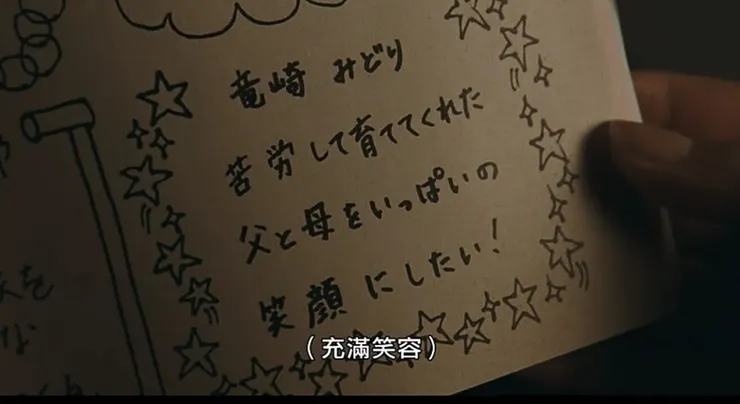 竜崎 みどり
苦労して育ててくれた
父と母をいっぱいの
笑顔にしたい!
（充滿笑容）